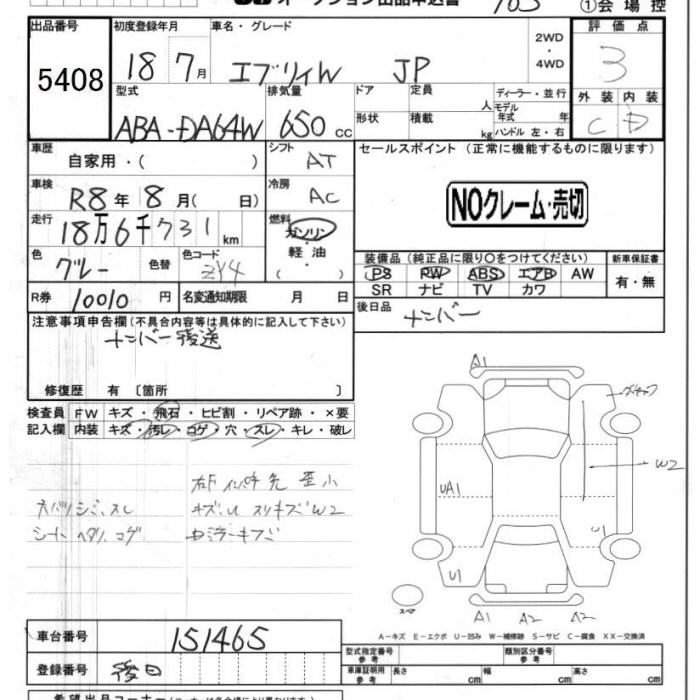 オークション出品申込書
①会場控
出品番号
5408
初度登録年月
18 7月
車名・グレード
エブリイW JP
2WD
・
4WD
評価点
3
型式
ABA-DA64W
排気量
650 cc
ドア
定員 人
形状
積載 kg
ディーラー・並行
モデル年式 年
ハンドル 左・右
外装 内装
C D
車歴
自家用・( )
シフト
AT
セールスポイント (正常に機能するものに限ります)
車検
R8年 8月( 日)
冷房
AC
NOクレーム・売切
走行
18万6千731km
燃料
ガソリン
・
軽油
( )
色
グレー
色替
色コード
ZY4
装備品 (純正品に限り〇をつけてください)
新車保証書
PS PW ABS エアB AW
有・無
SR ナビ TV カワ
R券 10010 円
名変通知期限 月 日
後日品
ナンバー
注意事項申告欄 (不具合内容等は具体的に記入して下さい)
ナンバー後送
修復歴 有 〔箇所 〕
検査員
記入欄
FW キズ・飛石・ヒビ割・リペア跡・×要
内装 キズ・汚レ・コゲ・穴・スレ・キレ・破レ
シート ヘタリ、コゲ
キズ、U スリキズW2
A1
W2
UA1
U1
U1
スペア
A1 A2 A2
A-キズ E-エクボ U-凹み W-補修跡 S-サビ C-腐食 XX-交換済
車台番号
151465
登録番号
後日
型式指定番号
参考
類別区分番号
参考
車庫証明用
参考
長さ cm 幅 cm 高さ cm